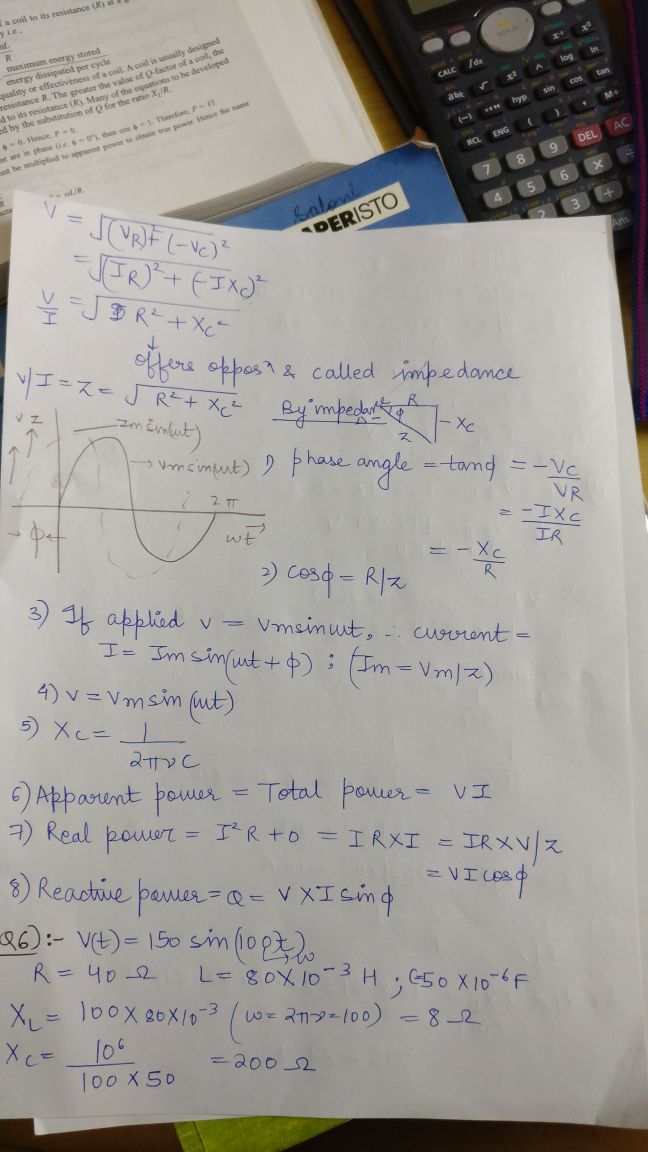 f a coil to its resistance (R) at a
y i.e.,
ωL
R
maximum energy stored
energy dissipated per cycle
quality or effectiveness of a coil. A coil is usually designed
resistance R. The greater the value of Q-factor of a coil, the
d to its resistance (R). Many of the equations to be developed
ed by the substitution of Q for the ratio XL/R.
ϕ = 0. Hence, P = 0.
nt are in phase (i.e. ϕ = 0°), then cos ϕ = 1. Therefore, P = VI.
ust be multiplied to apparent power to obtain true power. Hence the name
= ωL/R.
CALC ∫dx
x⁻¹ x³
abc √ x² ^ log ln
(-) °'" hyp sin cos tan
RCL ENG ( ) , M+
7 8 9 DEL AC
4 5 6 × ÷
1 2 3 +
Ans
REPLAY
Saloni
APERISTO
V = √(VR)² + (-VC)²
= √(IR)² + (-IXC)²
V/I = √R² + XC²
↓
offers opposⁿ & called impedance
V/I = Z = √R² + XC²
By impedance Δ
R
ϕ
Z
- XC
V I
Im sin(ωt)
→ Vm sin(ωt)
2π
ωt
→ ϕ ←
1) phase angle = tanϕ = -VC/VR
= -IXC/IR
= -XC/R
2) cosϕ = R/Z
3) If applied v = Vmsinωt, ∴ current =
I = Im sin(ωt + ϕ) ; (Im = Vm/Z)
4) v = Vm sin (ωt)
5) XC = 1/2πνC
6) Apparent power = Total power = VI
7) Real power = I²R + 0 = IR×I = IR×V/Z
= VI cosϕ
8) Reactive power = Q = V × I sinϕ
Q6) :- V(t) = 150 sin(100t)
→ ω
R = 40 Ω L = 80×10⁻³ H ; C=50 ×10⁻⁶F
XL = 100×80×10⁻³ (ω = 2πν = 100) = 8 Ω
XC = 10⁶/100 × 50 = 200 Ω